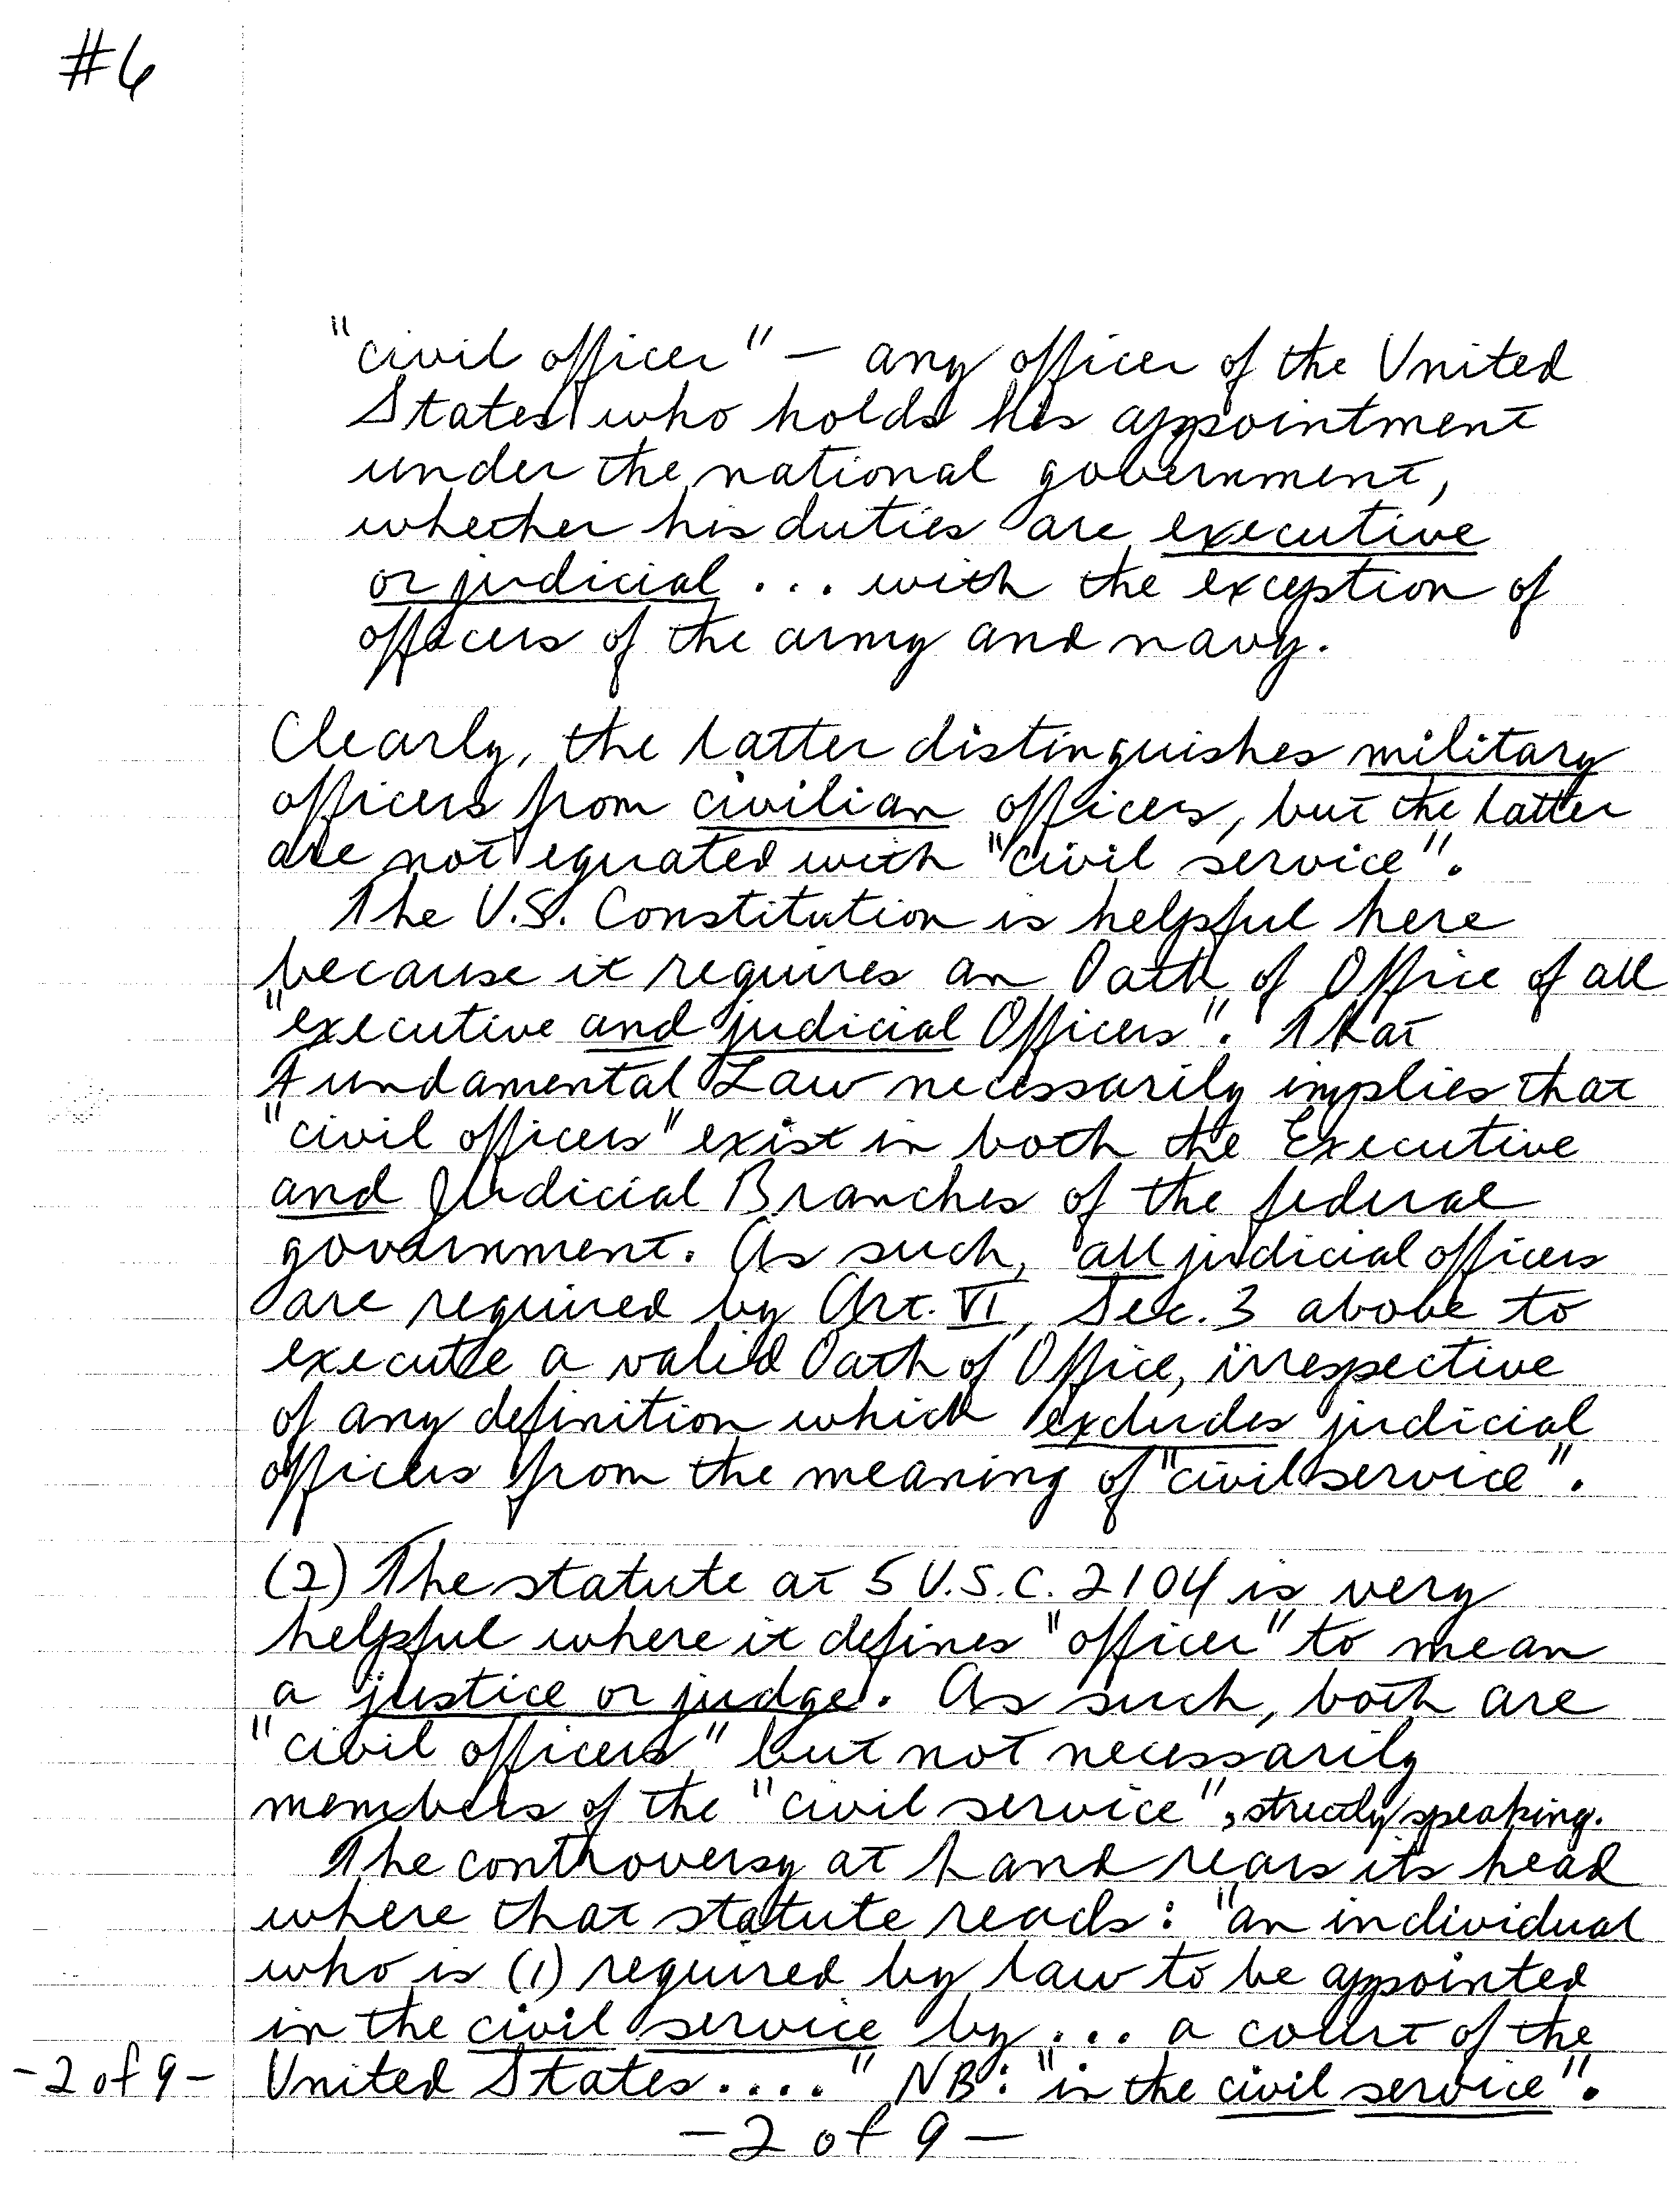 #6
"civil officer" — any officer of the United
States who holds his appointment
under the national government,
whether his duties are executive
or judicial ... with the exception of
officers of the army and navy.
Clearly, the latter distinguishes military
officers from civilian officers, but the latter
are not equated with "civil service".
The U.S. Constitution is helpful here
because it requires an Oath of Office of all
"executive and judicial Officers". That
Fundamental Law necessarily implies that
"civil officers" exist in both the Executive
and Judicial Branches of the federal
government. As such, all judicial officers
are required by Art. VI, Sec. 3 above to
execute a valid Oath of Office, irrespective
of any definition which excludes judicial
officers from the meaning of "civil service".
(2) The statute at 5 U.S.C. 2104 is very
helpful where it defines "officer" to mean
a justice or judge. As such, both are
"civil officers" but not necessarily
members of the "civil service", strictly speaking.
The controversy at hand rears its head
where that statute reads: "an individual
who is (1) required by law to be appointed
in the civil service by ... a court of the
United States ...." NB: "in the civil service".
-2 of 9-
-2 of 9-